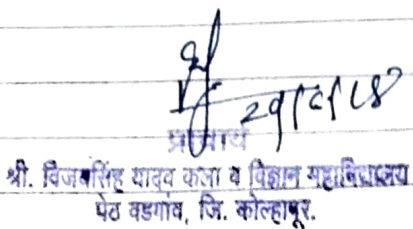 प्राचार्य
श्री. विजयसिंह यादव कला व विज्ञान महाविद्यालय
पेठ वडगांव, जि. कोल्हापूर.